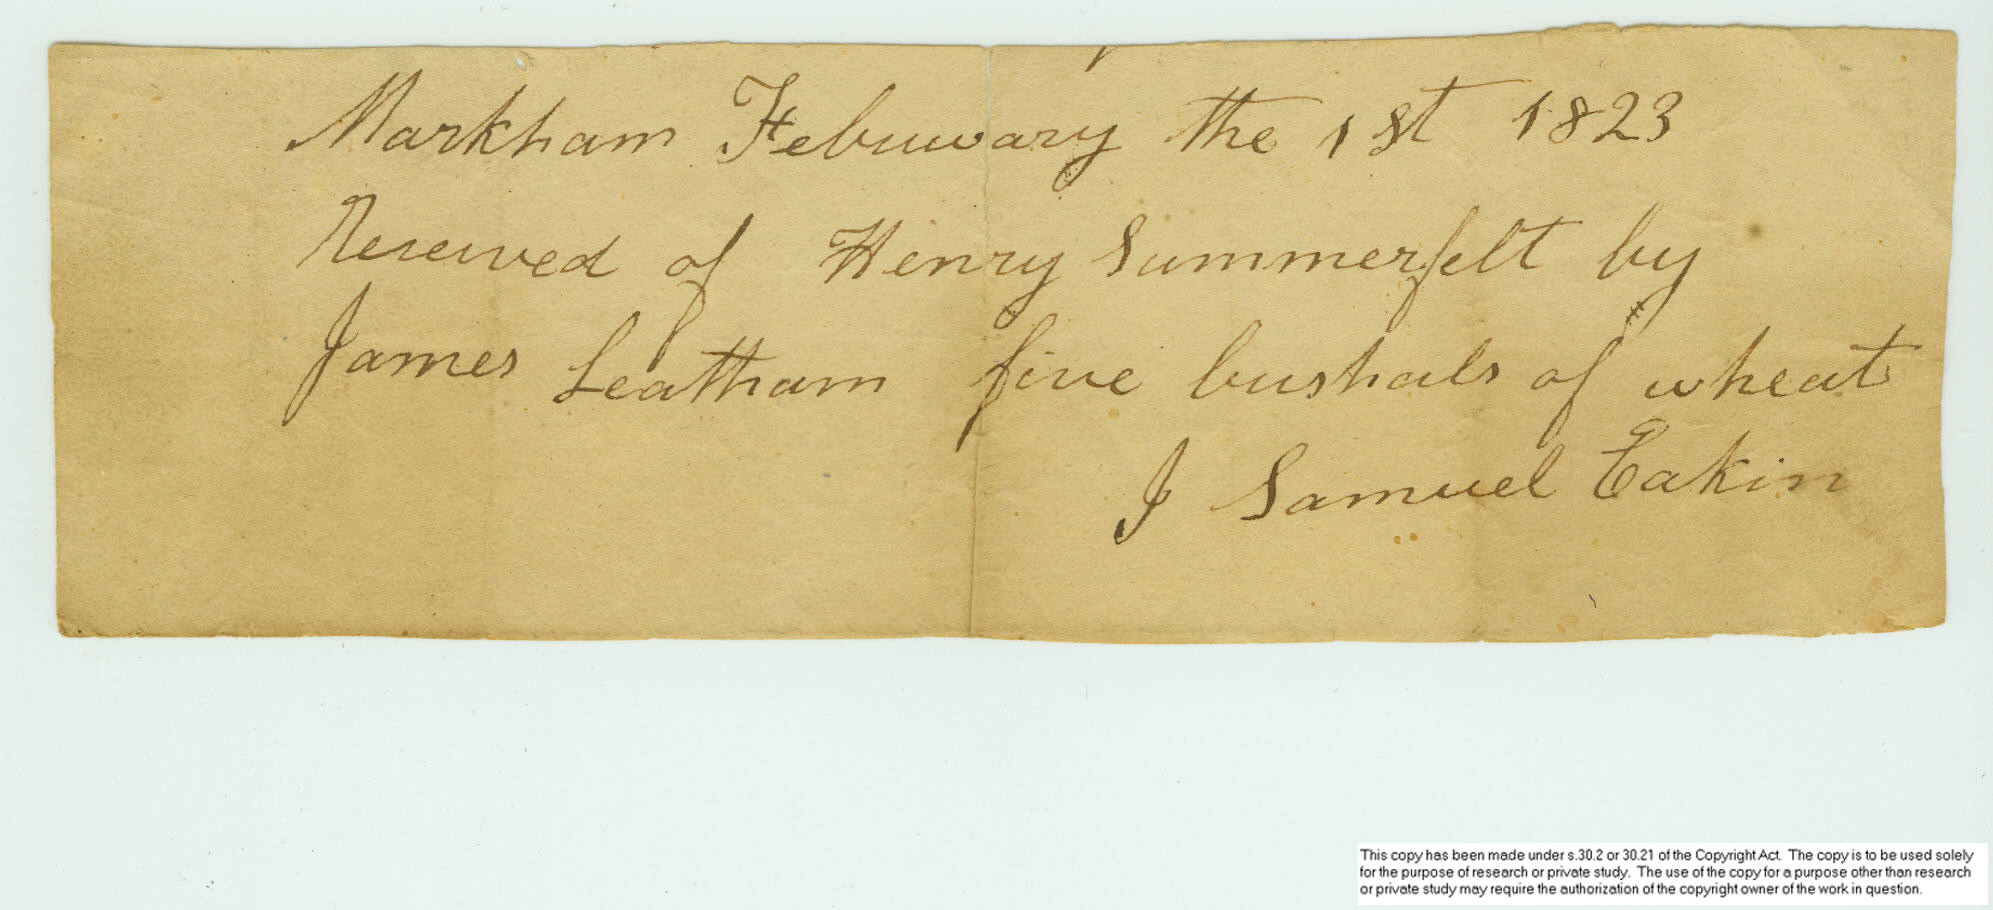 Markham Febuwary the 1st 1823
Reseived of Henry Summerfelt by
James Leatham five bushals of wheat
J Samuel Eakin
This copy has been made under s.30.2 or 30.21 of the Copyright Act. The copy is to be used solely
for the purpose of research or private study. The use of the copy for a purpose other than research
or private study may require the authorization of the copyright owner of the work in question.